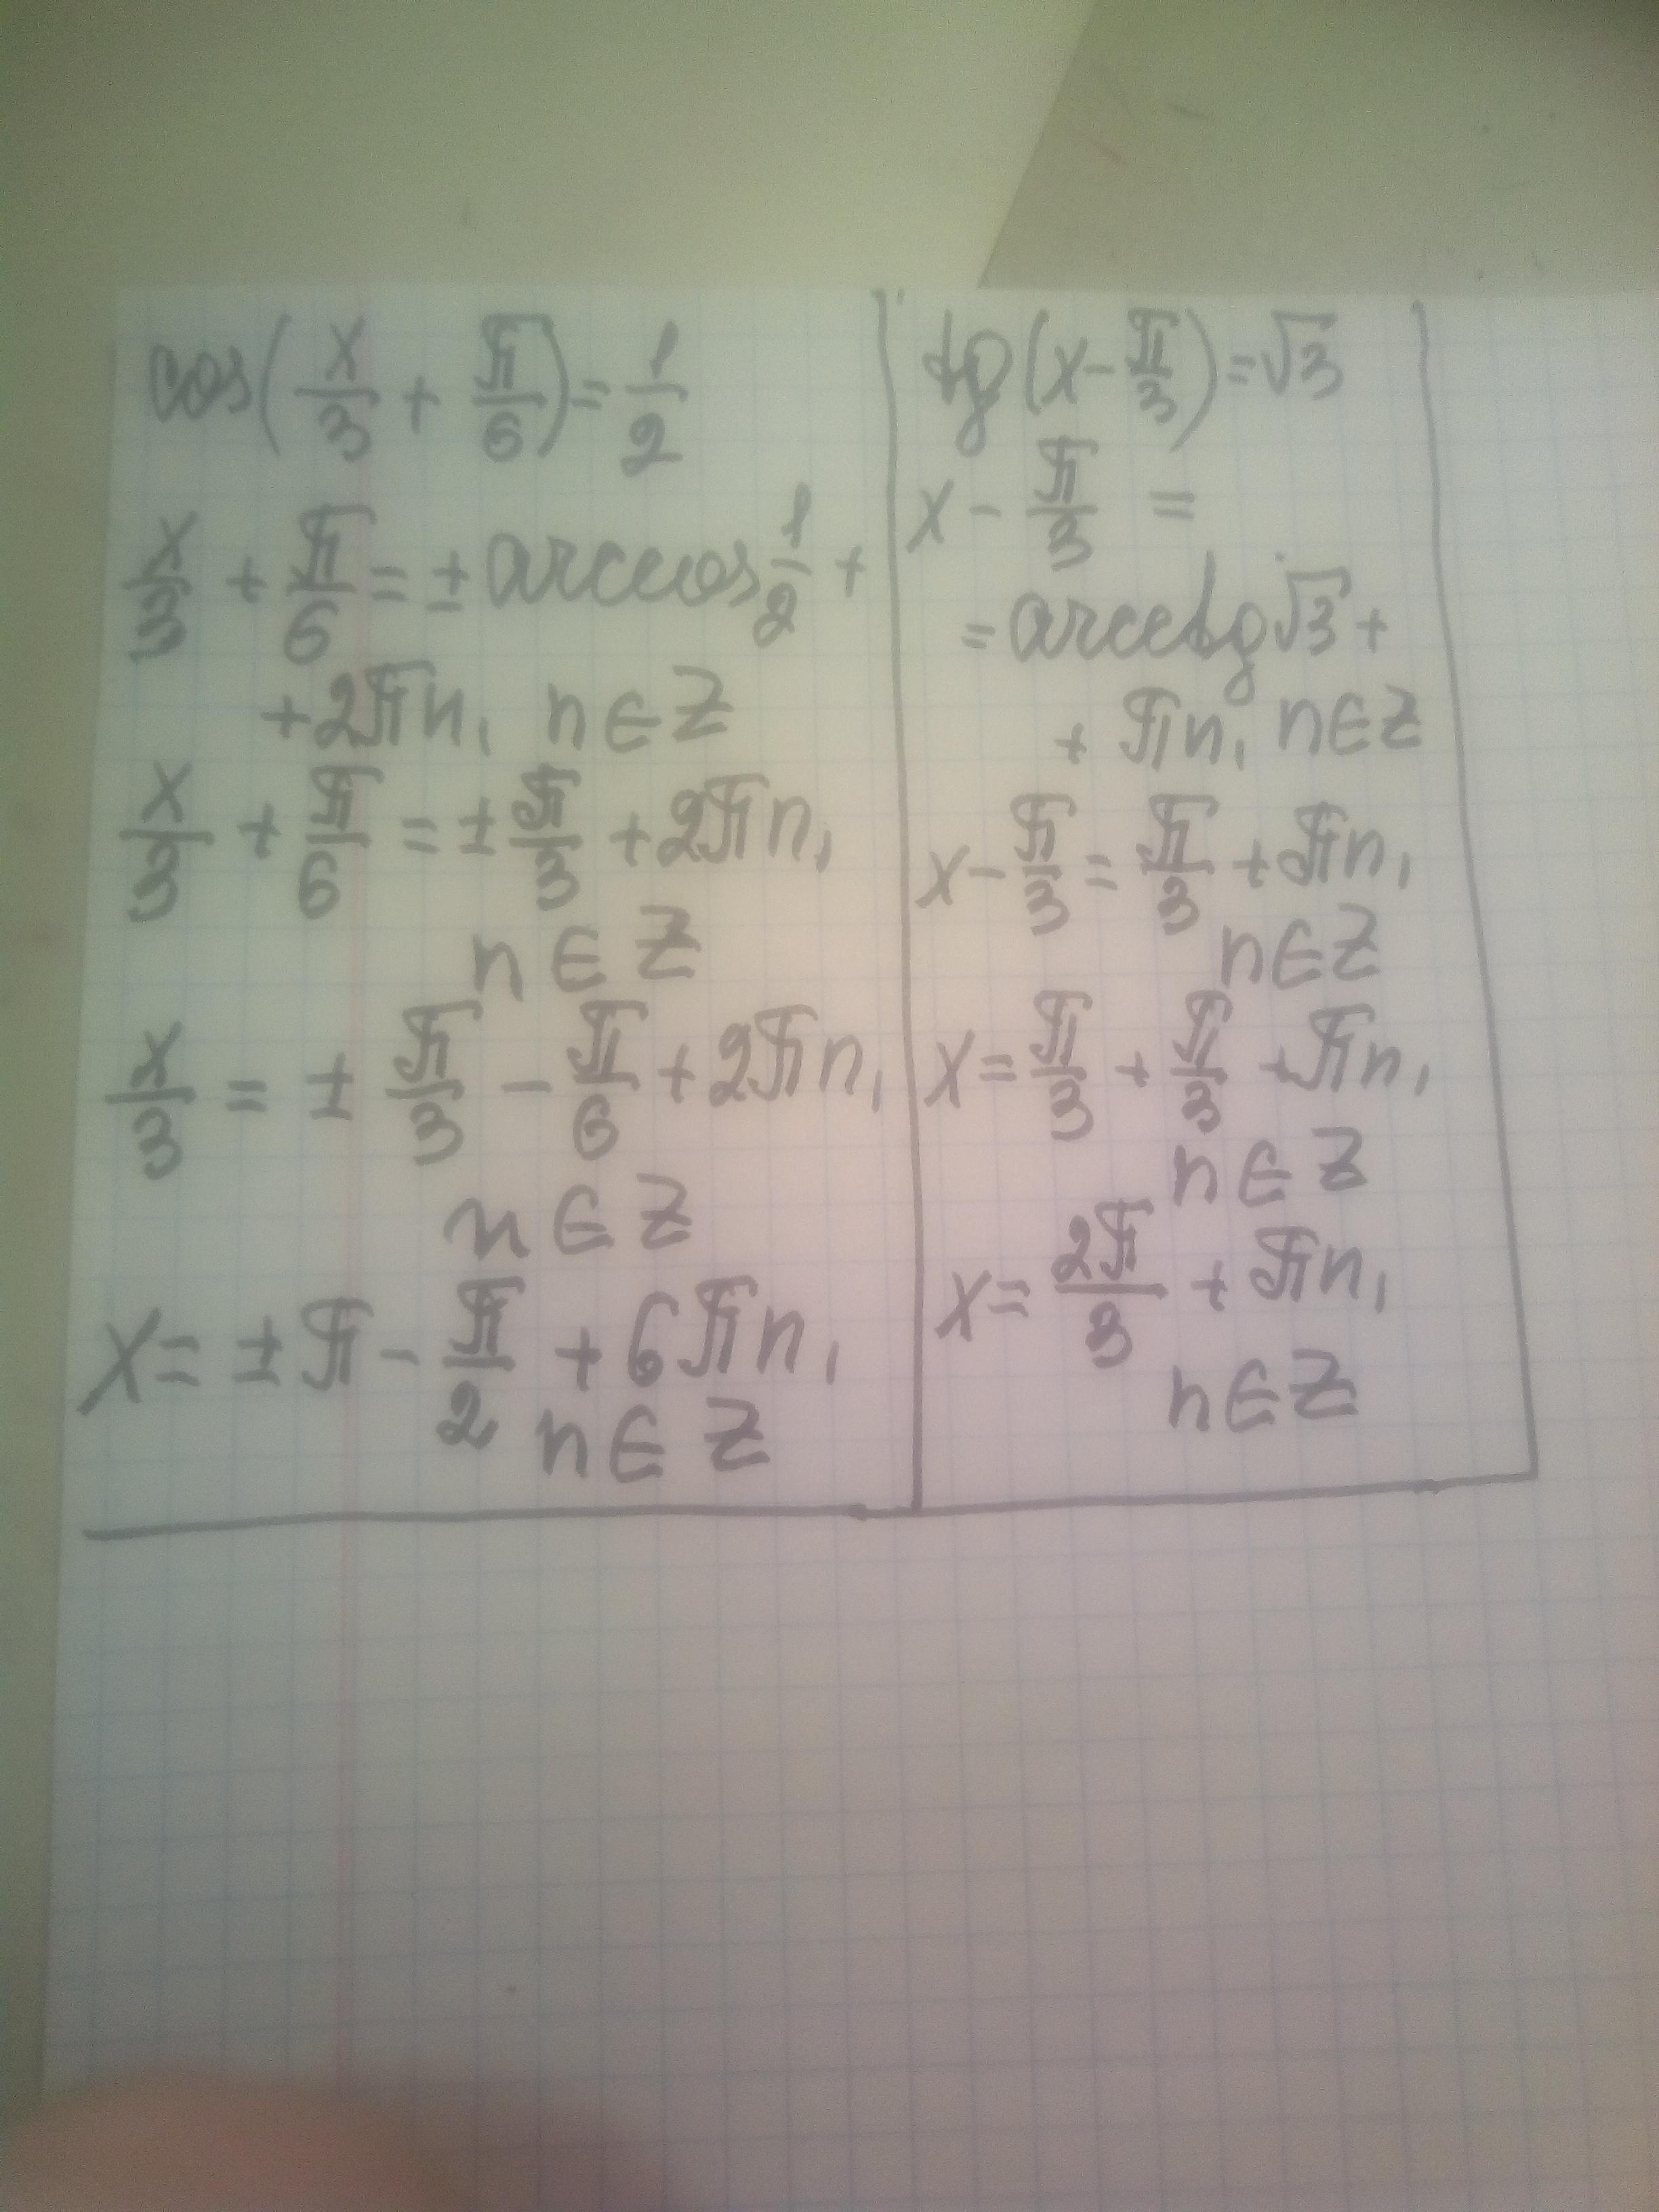 cos(x/3 + π/6) = 1/2
x/3 + π/6 = ± arccos 1/2 +
+ 2πn, n ∈ Z
x/3 + π/6 = ± π/3 + 2πn,
n ∈ Z
x/3 = ± π/3 - π/6 + 2πn,
n ∈ Z
x = ± π - π/2 + 6πn,
n ∈ Z
tg(x - π/3) = √3
x - π/3 =
= arctg √3 +
+ πn, n ∈ Z
x - π/3 = π/3 + πn,
n ∈ Z
x = π/3 + π/3 + πn,
n ∈ Z
x = 2π/3 + πn,
n ∈ Z